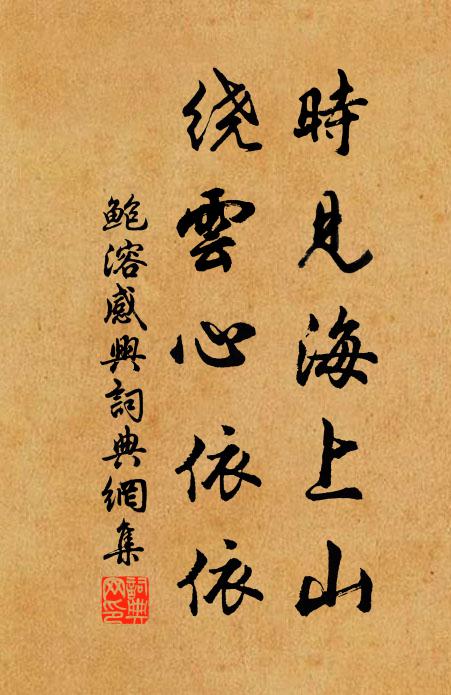 時見海上山
绕雲心依依
鲍溶感興詞典網集
詞典
网印